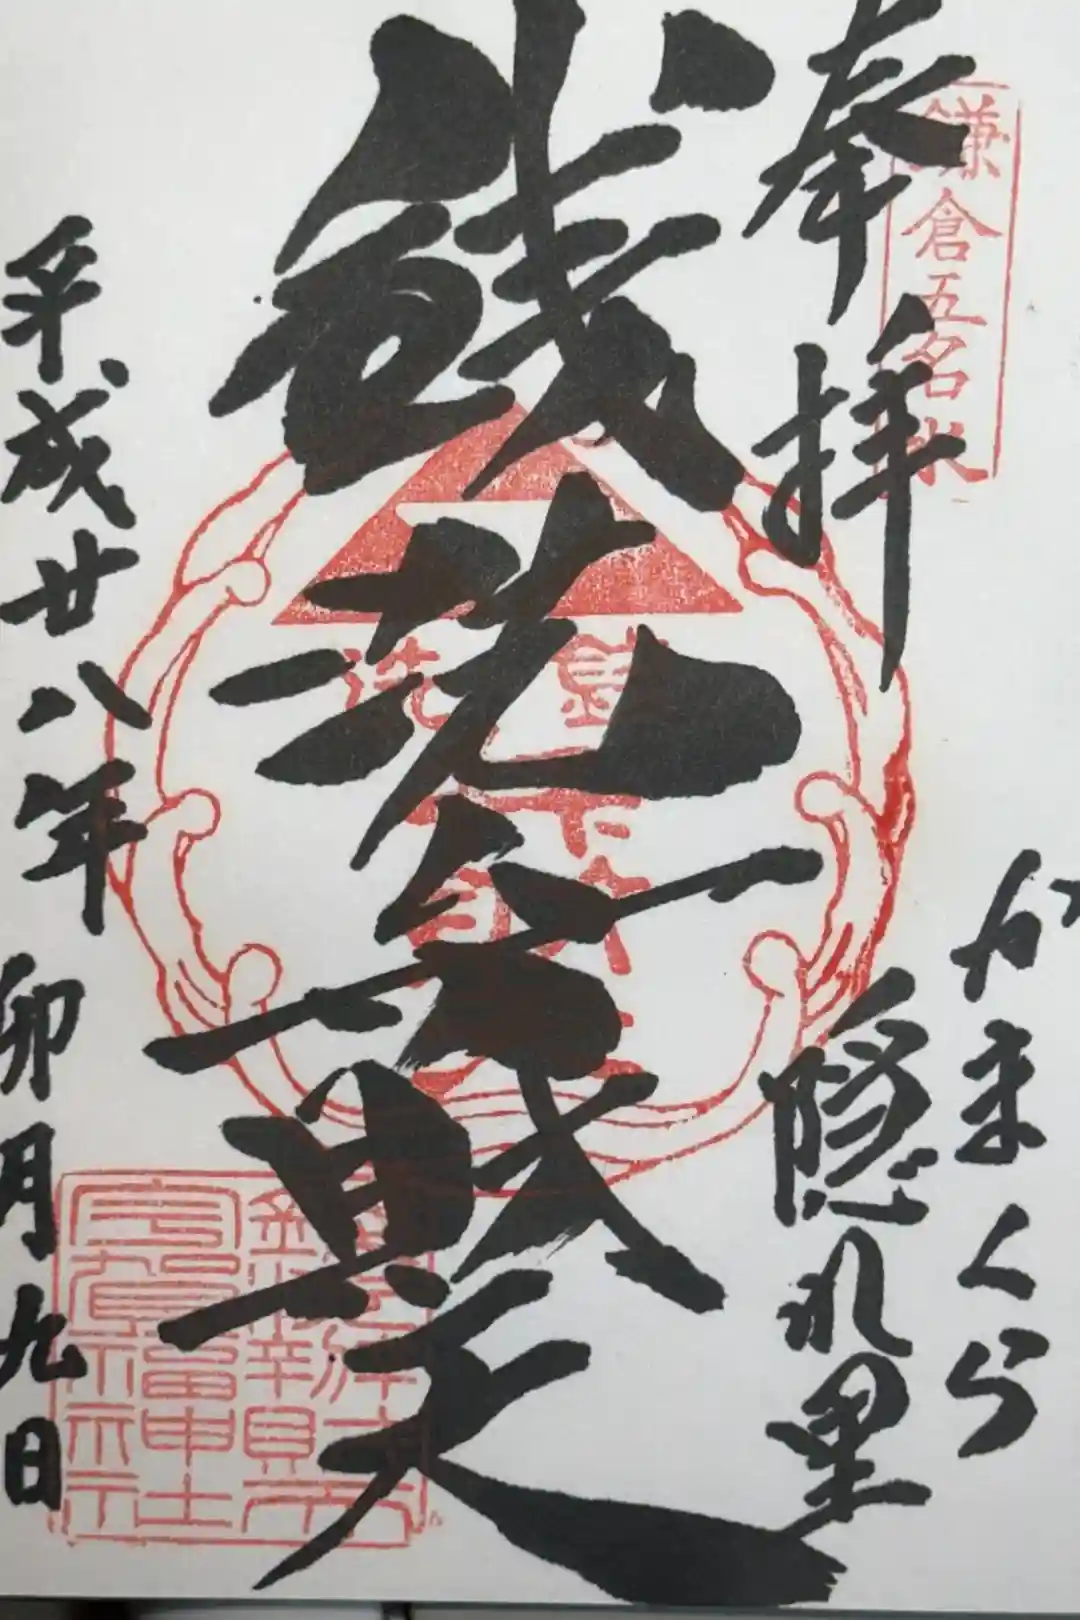 奉拝
鎌倉五名水
かまくら
隠れ里
銭洗弁財天
平成廿八年
卯月九日
銭洗弁財天
宇賀福神社